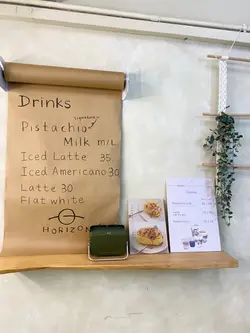 Drinks
Signature
Pistachio
Milk M/L
Iced Latte 35
Iced Americano 30
Latte 30
Flat white
HORIZON